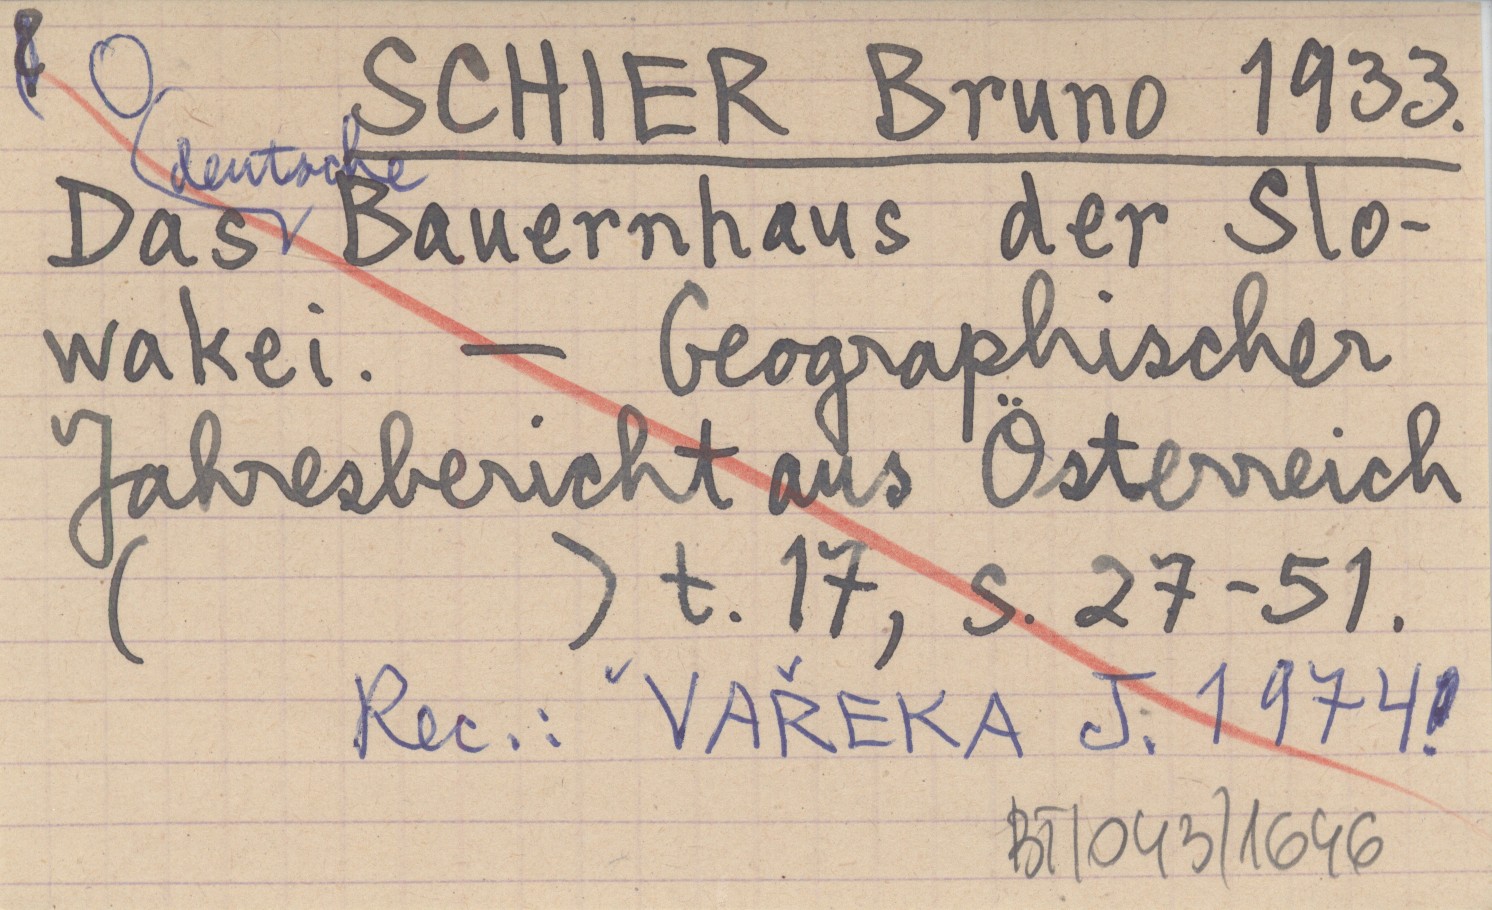 O SCHIER Bruno 1933.
deutsche
Das Bauernhaus der Slo-
wakei. — Geographischer
Jahresbericht aus Österreich
( ) t. 17, s. 27-51.
Rec.: VAŘEKA J. 1974!
BT/043/1646